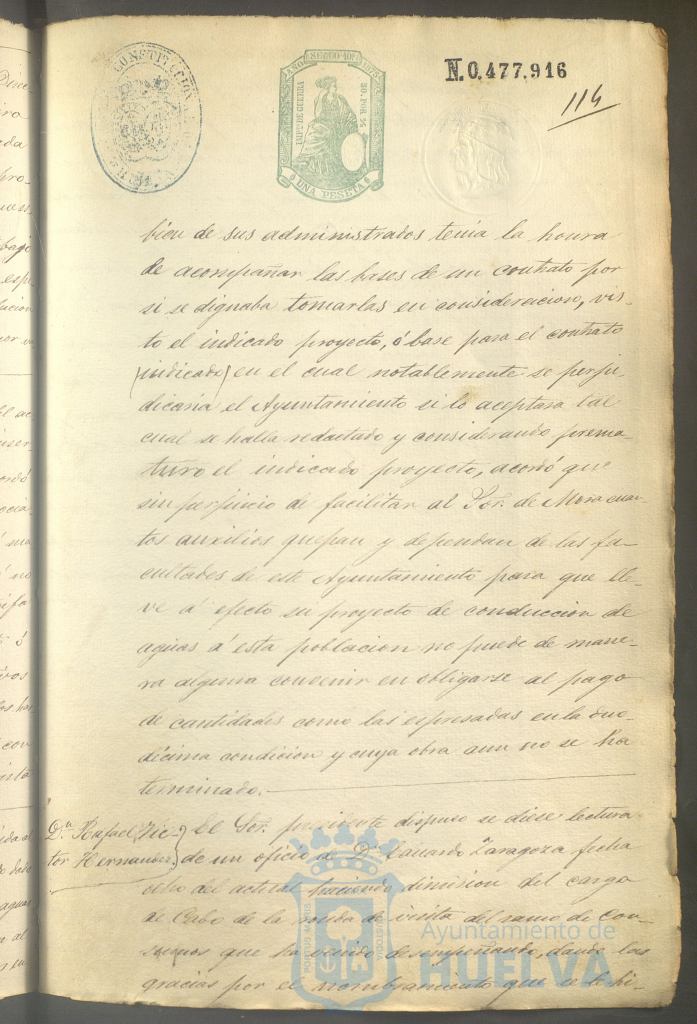 CONSTITUCION
AÑO SEGUNDO 10 1875
IMPTO DE GUERRA
50. POR %
UNA PESETA
N. 0.477.916
114
bien de sus administrados tenia la honra
de acompañar las bases de un contrato por
si se dignaba tomarlas en consideracion, vis-
to el indicado proyecto, ó base para el contrato
(indicado) en el cual notablemente se perju-
dicaria el Ayuntamiento si lo aceptara tal
cual se halla redactado y considerando prema-
turo el indicado proyecto, acordó que
sin perjuicio de facilitar al Sor. de Mora cuan-
tos auxilios quepan y dependan de las fa-
cultades de este Ayuntamiento para que lle-
ve á efecto su proyecto de conduccion de
aguas á esta poblacion no puede de mane-
ra alguna convenir en obligarse al pago
de cantidades como las espresadas en la duo-
décima condicion y cuya obra aun no se ha
terminado.
Dn. Rafael Vic-
tor Hernandez
El Sor. presidente dispuso se diese lectura
de un oficio de D. Eduardo Zaragoza fecha
ocho del actual haciendo dimision del cargo
de Cabo de la ronda de visita del ramo de Con-
sumos que ha venido desempeñando, dando las
gracias por el nombramiento que se le hi-
Ayuntamiento de
HUELVA